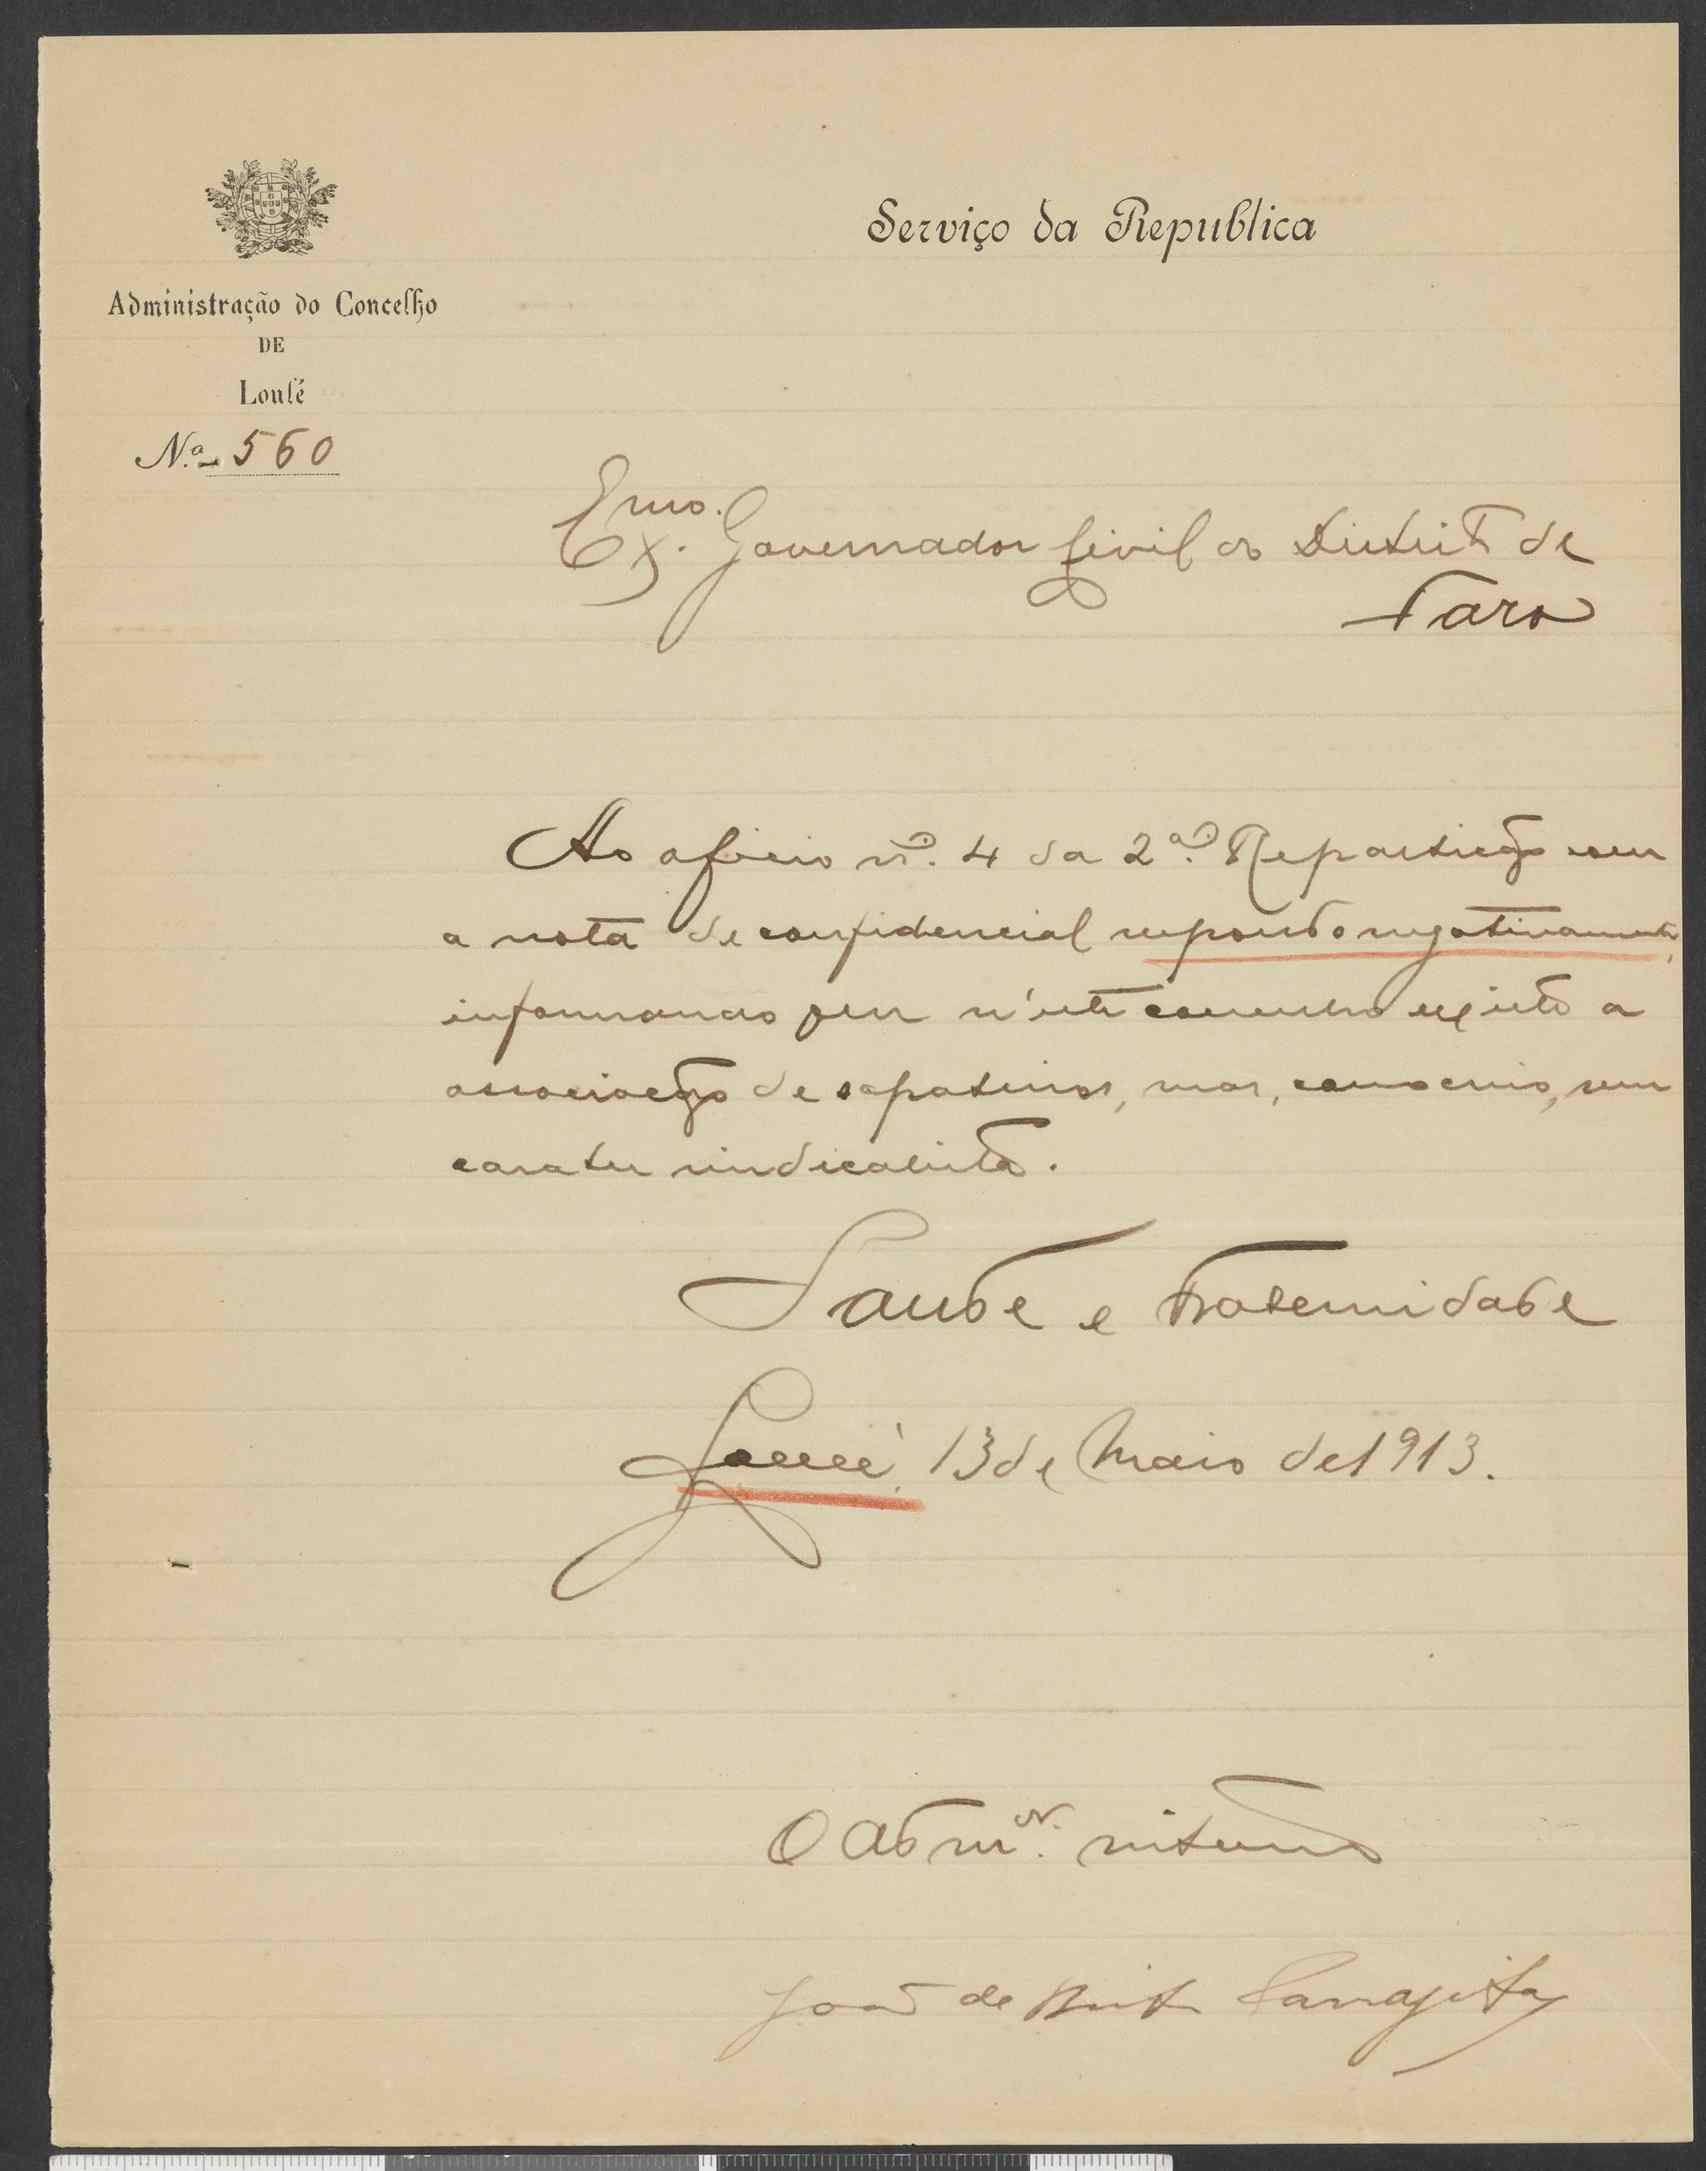 Serviço da Republica
Administração do Concelho
DE
Loulé
N.º 560
Exmo. Governador Civil do Distrito de
Faro
Ao oficio nº. 4 da 2ª. Repartição com
a nota de confidencial respondo negativamente,
informando que n'este concelho existe a
associação de sapateiros, mas, como creio, sem
carater sindicalista.
Saude e Fraternidade
Loulé, 13 de Maio de 1913.
O Admor. interino
João de Brito